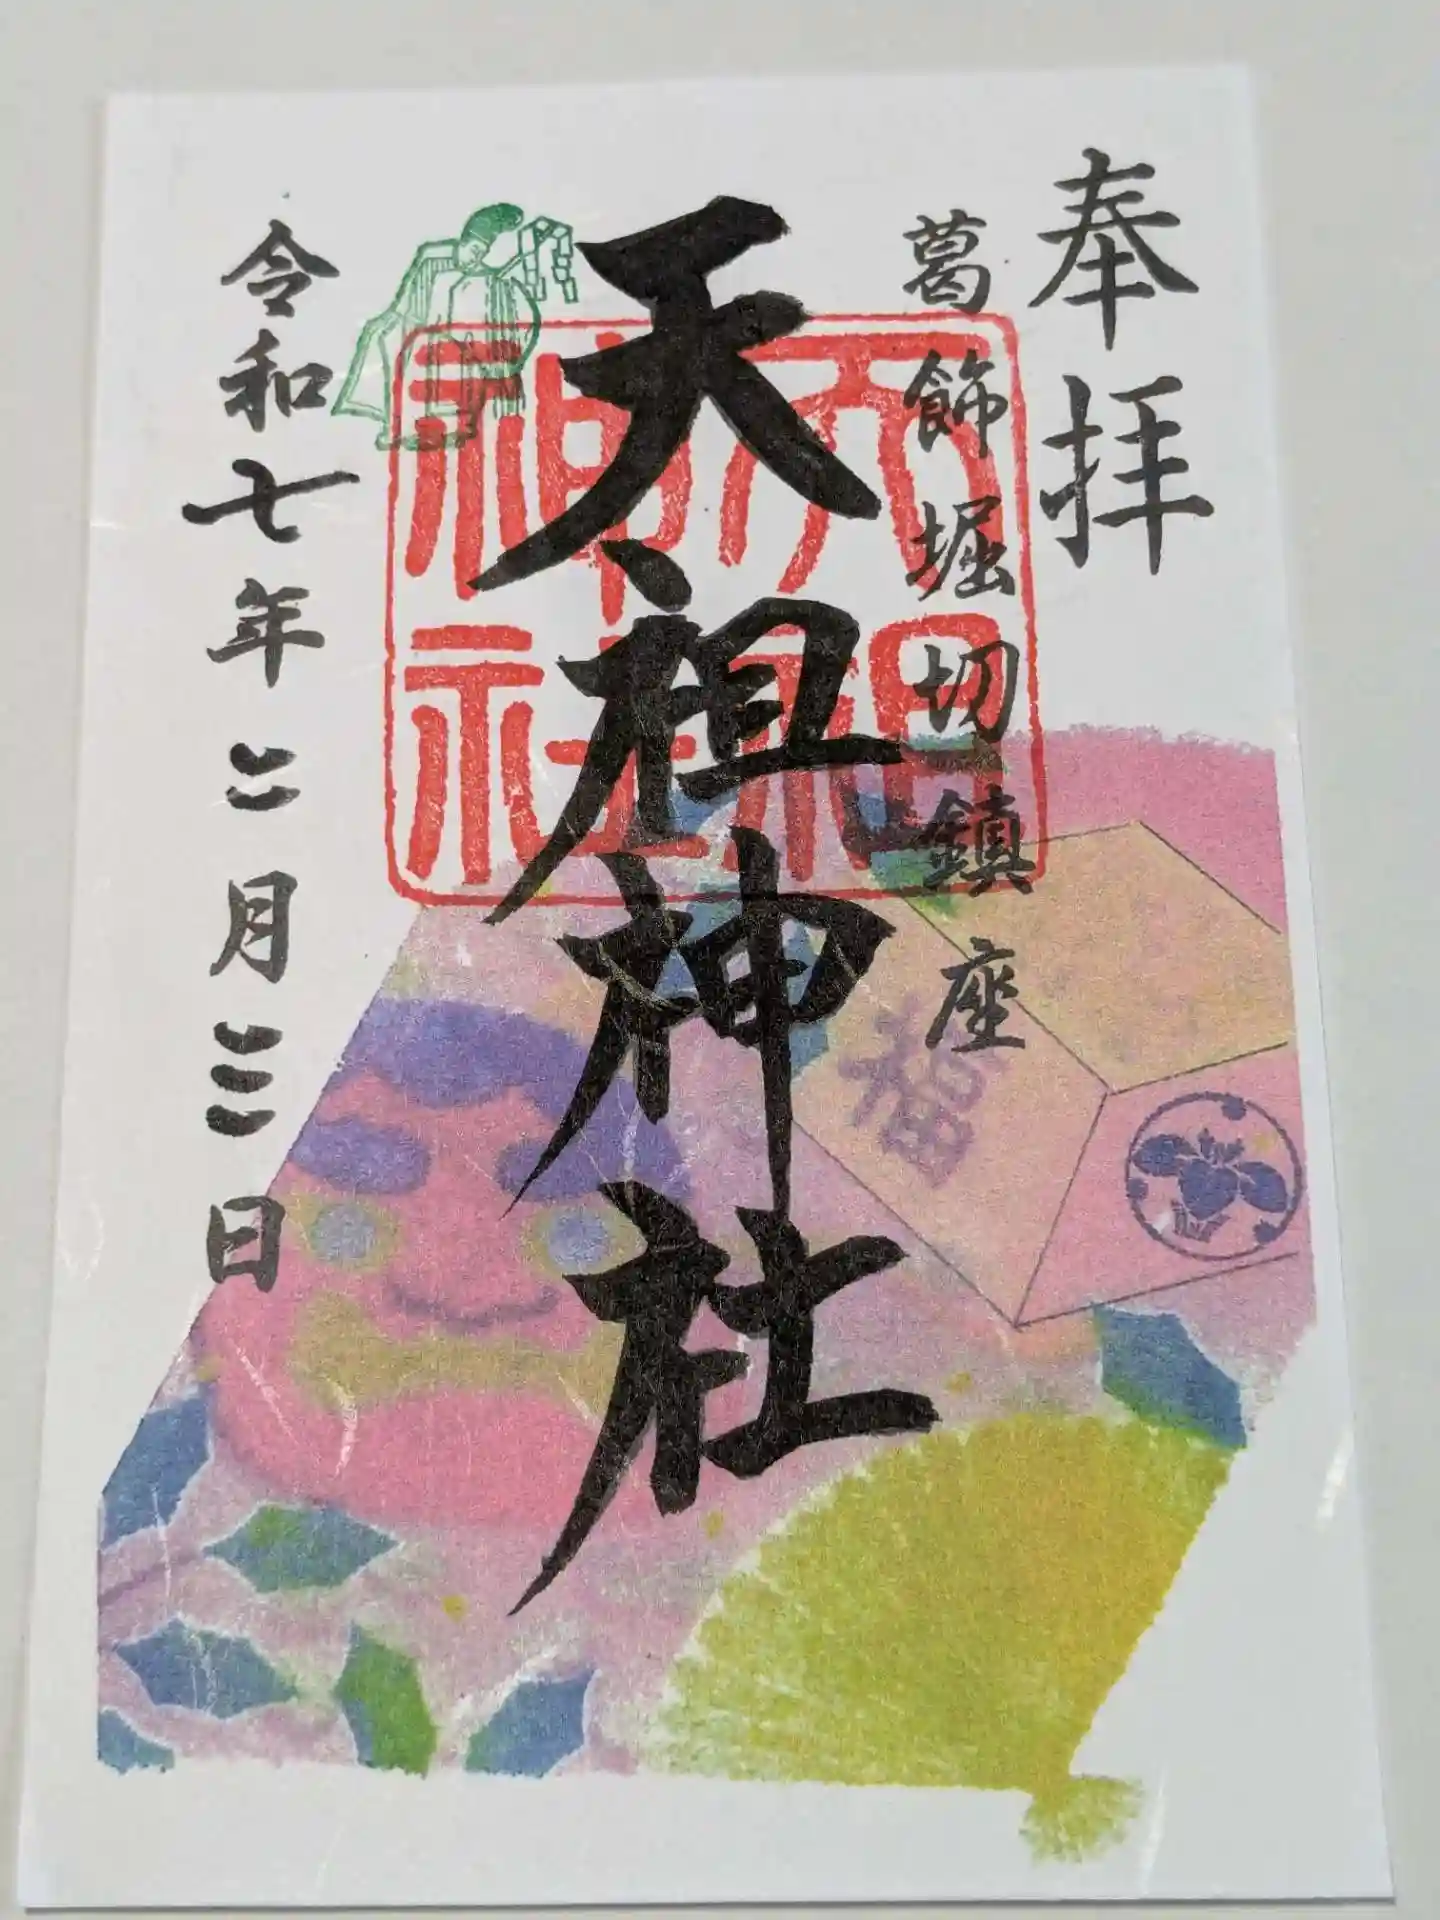 奉拝
葛飾堀切鎮座
天祖神社
天祖
神社
令和七年二月三日